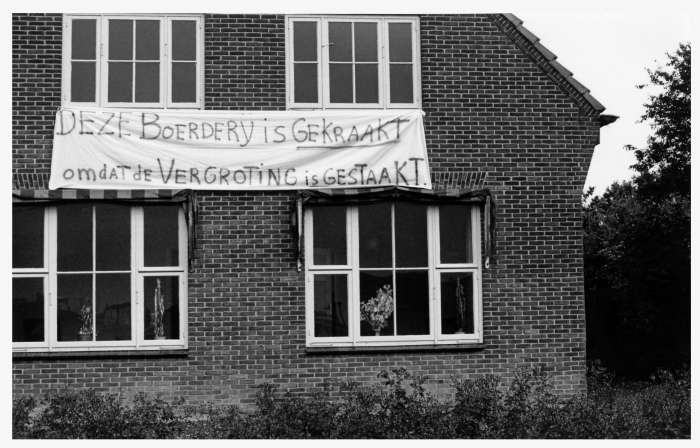 DEZE BOERDERY is GEKRAAKT
omdat de VERGROTING is GESTAAKT